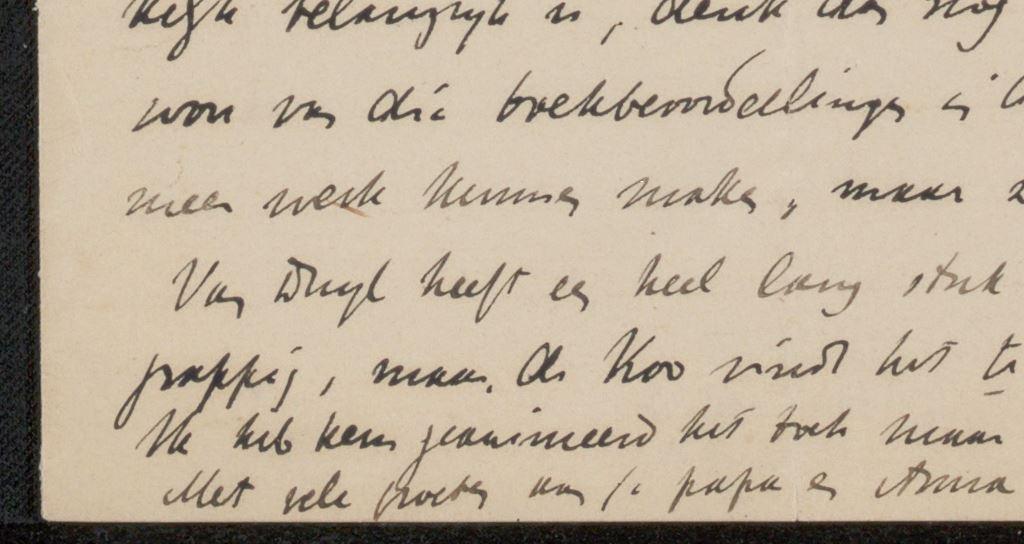 belangrijk is, denk dan nog
voor van die boekbeoordeelingen
meer werk kunnen maken, maar
Van Duyl heeft een heel lang stuk
grappig, maar de Koo vindt het te
Ik heb hem geanimeerd het toch maar
Met vele groeten aan je papa en Anna